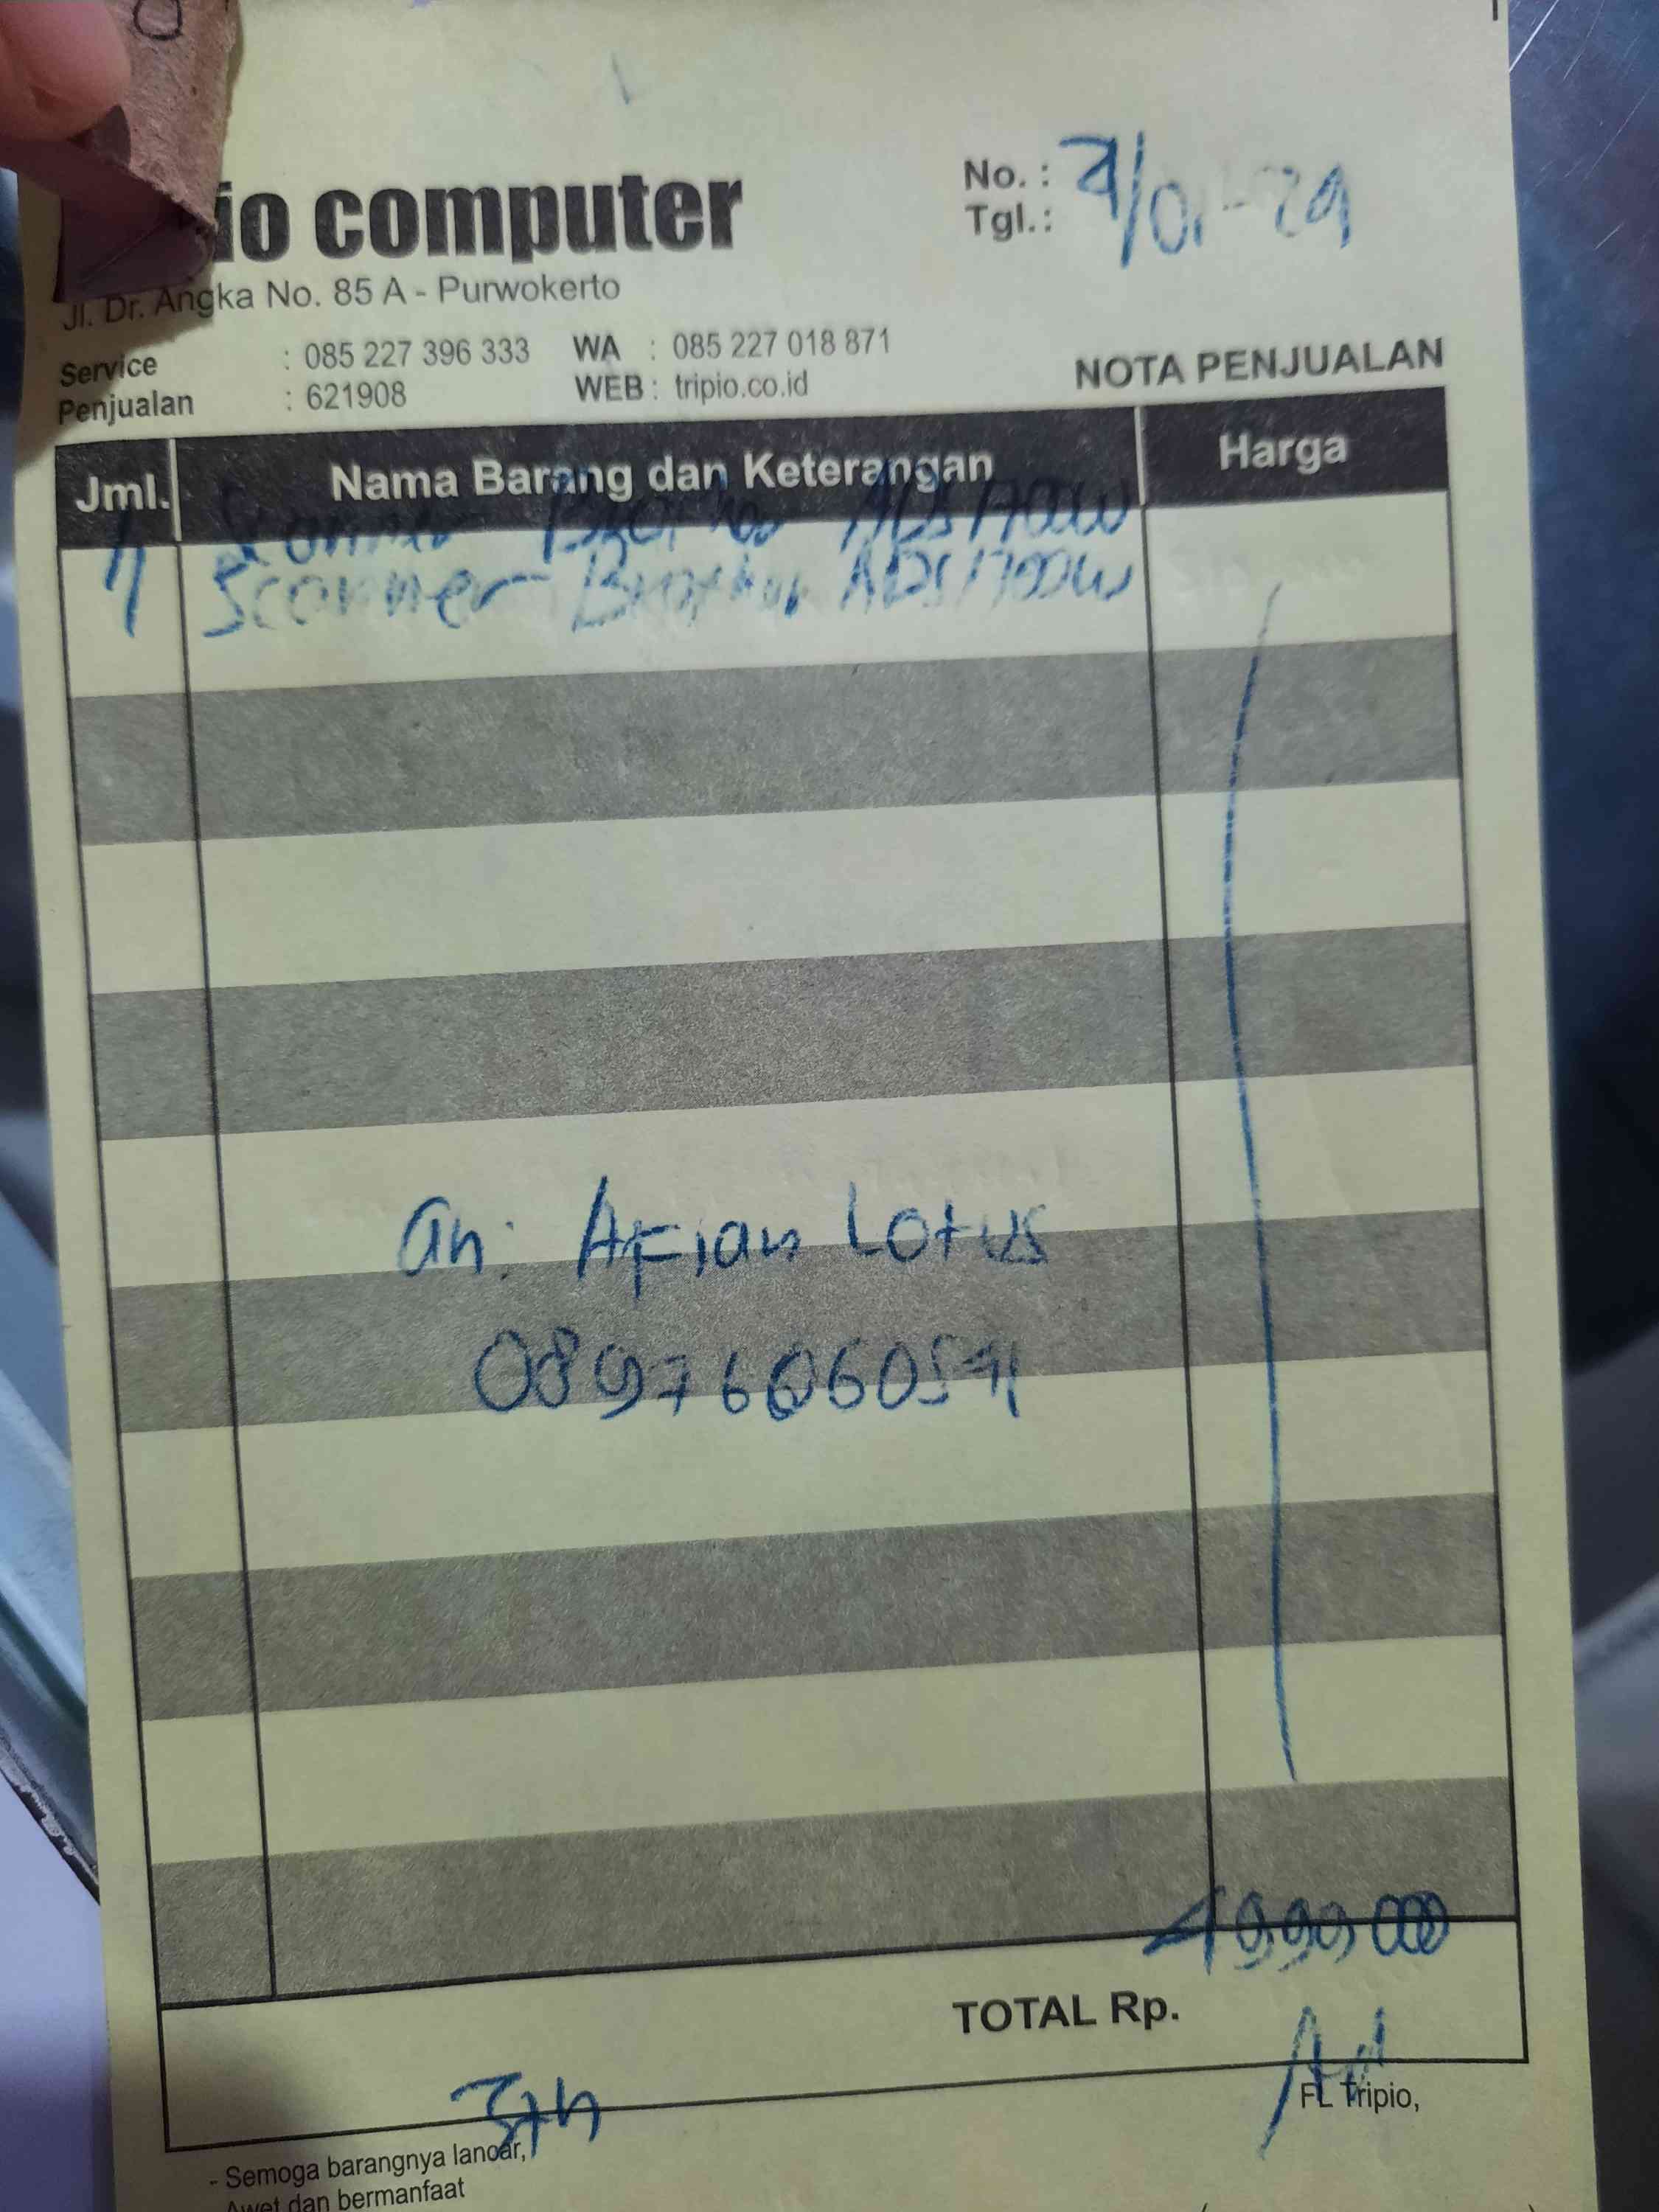 io computer
No. :
Tgl. : 7/01-24
Jl. Dr. Angka No. 85 A - Purwokerto
Service : 085 227 396 333 WA : 085 227 018 871
Penjualan : 621908 WEB : tripio.co.id
NOTA PENJUALAN
Jml. Nama Barang dan Keterangan Harga
Scanner Brother ADS1700W
1 Scanner Brother ADS1700W
an: Afian Lotus
4.990.000
TOTAL Rp.
FL Tripio,
- Semoga barangnya lancar,
Awet dan bermanfaat